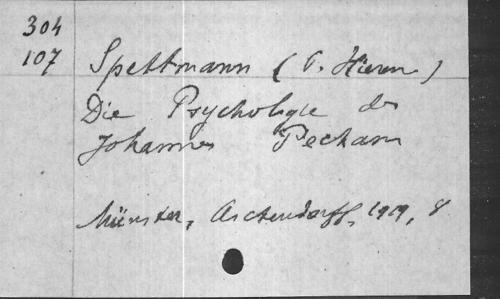 304
107
Spettmann (P. Hieron.)
Die Psychologie des
Johannes Pecham
Münster, Aschendorff, 1919, 8